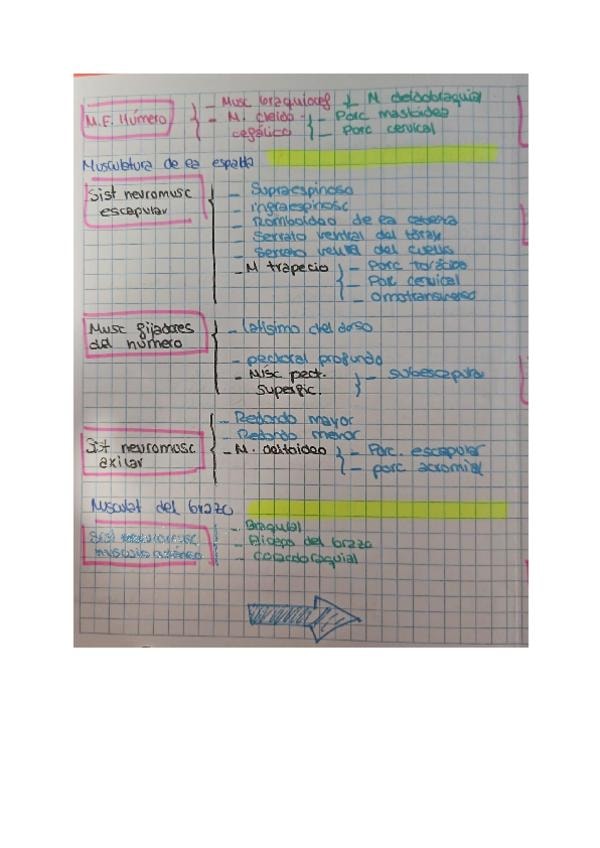 M.E. Húmero
- Musc braquiocef
- M. cleido
cefálico
M deltobraquial
- Porc mastoidea
- Porc cervical
Musculatura de la espalda
Sist neuromusc
escapular
- Supraespinoso
- infraespinosc
- Romboidao de la cabeza
- Serrato ventral del tórax
- Serrato del cuello
- M trapecio
- Porc torácica
- Por cervical
- Omotransverso
Musc fijadores
del humero
- latisimo del dorso
- pectoral profundo
- Musc pect.
superfic.
- subescapular
Sist neuromusc
axilar
- Redondo mayor
- Redondo menor
- M. deltoideo
- Porc. escapular
- porc acromial
Musculat del brazo
Sist
- Braquial
- Biceps del brazo
- Coracobraquial